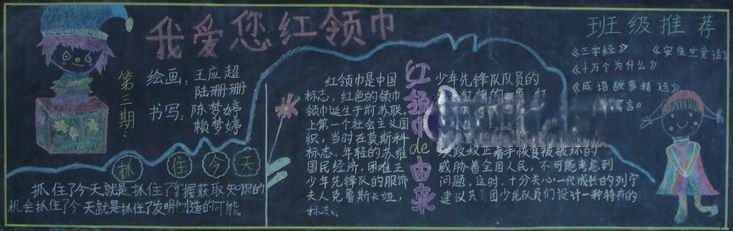 我爱您红领巾
第三期:
绘画: 王应超
陆珊珊
书写: 陈梦婷
赖梦婷
抓住今天
抓住了今天就是抓住了掌握获取知识的
机会抓住了今天就是抓住了发明创造的可能
红领巾de由来
红领巾是中国
标志,红色的领巾
领巾诞生于前苏联
上第一个社会主义国
织,当时在莫斯科
标志。年轻的苏维
国民经济,困难正
少年先锋队的服饰
夫人克鲁斯卡娅,
标志。
少年先锋队队员的
政权正着手恢复被破坏的
威胁着全国人民,不可能考虑到
问题,这时,十分关心一代成长的列宁
建议共 团少先队员们设计一种特有的
班级推荐
《三字经》《安徒生童话》
《十万个为什么》
《成语故事精选》
言》